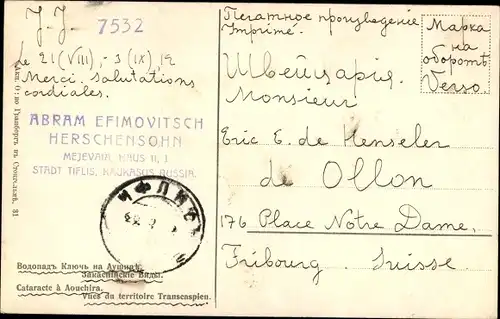 J-J- 7532
Le 21(VIII) - 3(IX) 12
Merci. Salutations
cordiales.
ABRAM EFIMOVITSCH
HERSCHENSOHN
STADT TIFLIS, KAUKASUS RUSSIA.
Акц. О-во Гранбергъ въ Стокгольмѣ. 31
ТИФЛИСЪ
Водопадъ Ключъ на Ауширъ.
Закаспійскіе Виды.
Cataracte à Aouchira.
Vues du territoire Transcaspien.
Печатное произведеніе
Imprimé.
Марка
на
оборотѣ
Verso.
Швейцарія.
Monsieur
Eric E. de Henseler
de Ollon
176 Place Notre Dame,
Fribourg. Suisse.